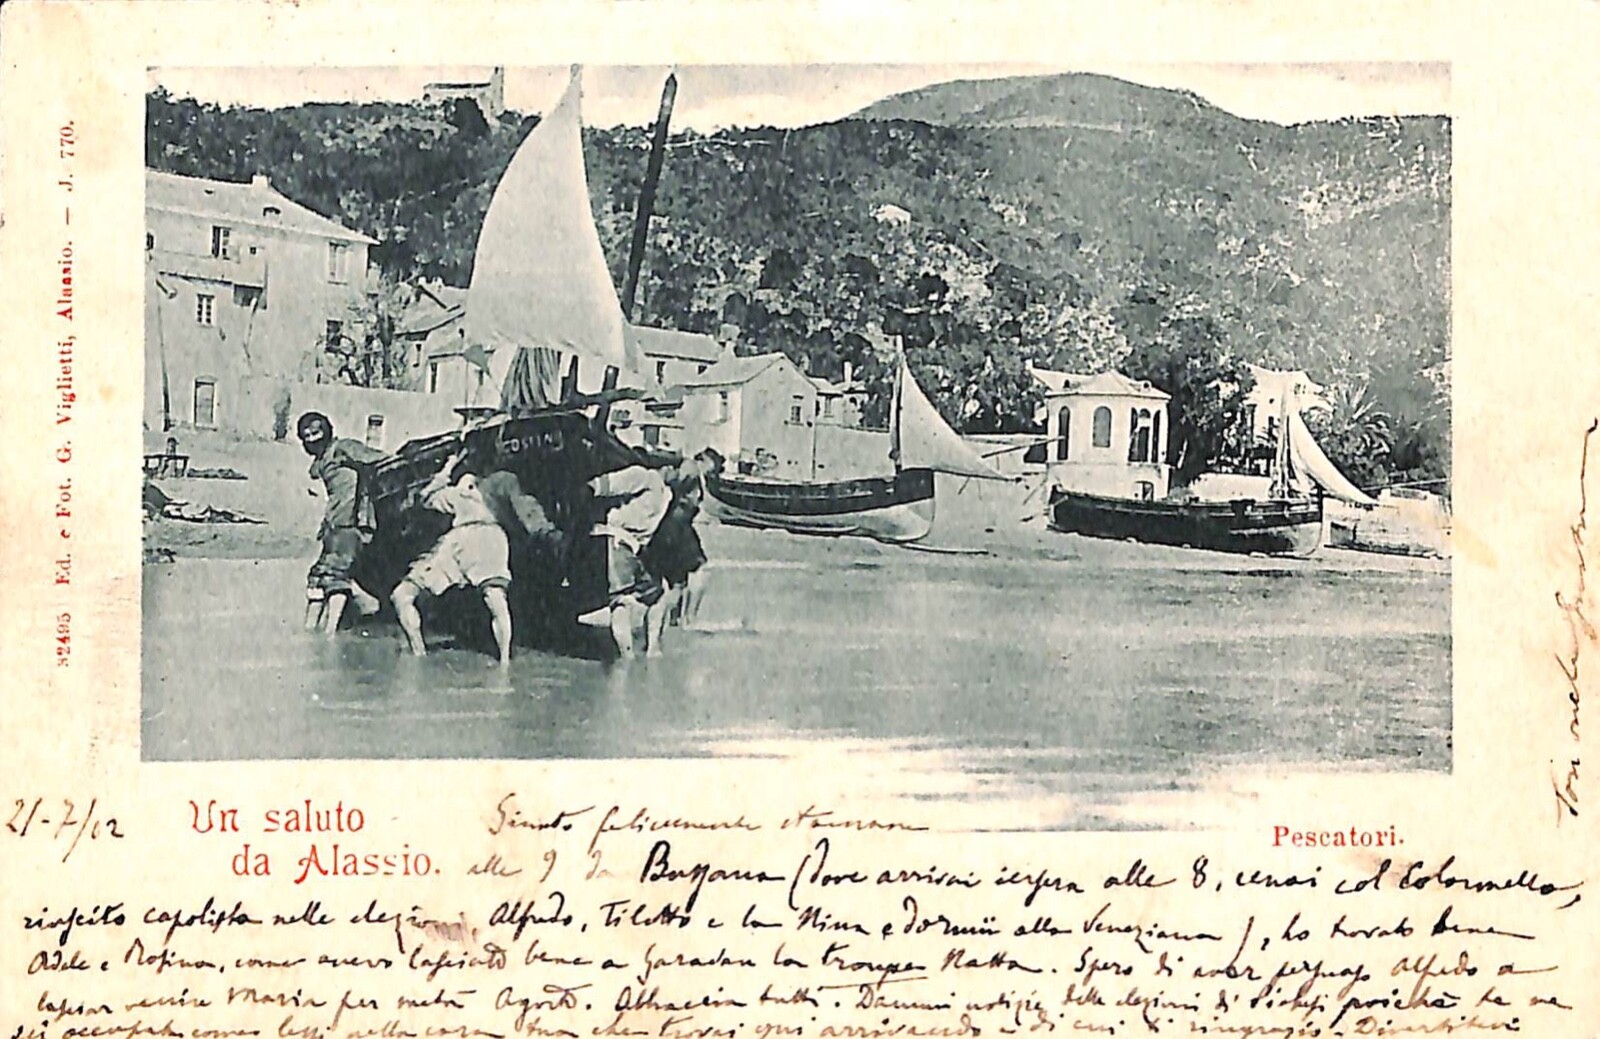 32495 Ed. e Fot. G. Viglietti, Alassio. — J. 770.
21-7/02
Un saluto
da Alassio.
Pescatori.
Giunto felicemente stamane
alle 9 da Bussana (dove arrivai iersera alle 8, cenai col Colonnello,
riuscito capolista nelle elezioni, Alfredo, Tiletto e la Nina e dormii alla Veneziana), ho trovato bene
Adele e Rosina, come avevo lasciato bene a la troupe Natta. Spero di aver persuaso Alfredo a
lasciar venire Maria per metà Agosto. Abbraccia tutti. Dammi notizie delle elezioni di poichè te ne
sei occupato come lessi nella cara tua che trovai qui arrivando e di cui ti ringrazio. Divertitevi